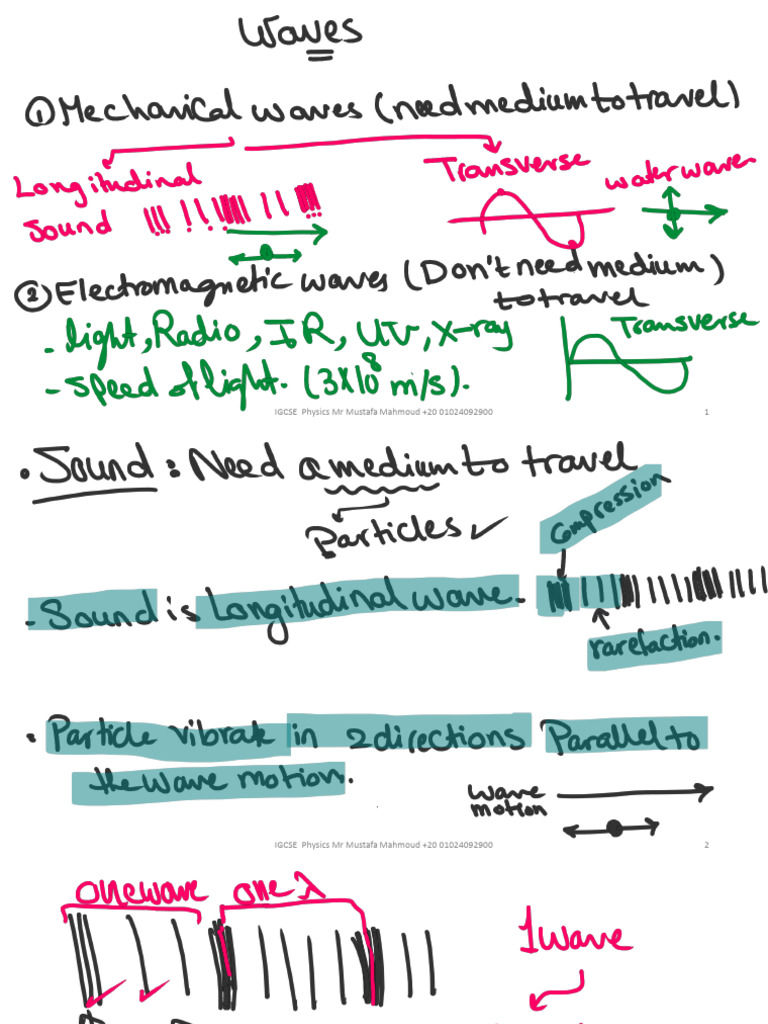 Waves
① Mechanical waves (need medium to travel)
Longitudinal
Sound
Transverse
water wave
② Electromagnetic waves (Don't need medium)
to travel
- light, Radio, IR, UV, X-ray
- speed of light. (3X10⁸ m/s).
Transverse
IGCSE Physics Mr Mustafa Mahmoud +20 01024092900
1
• Sound : Need a medium to travel
Particles ✓
compression
- Sound is Longitudinal wave.
rarefaction.
• Particle vibrate in 2 directions Parallel to
the wave motion.
wave
motion
IGCSE Physics Mr Mustafa Mahmoud +20 01024092900
2
one wave one λ
1 wave